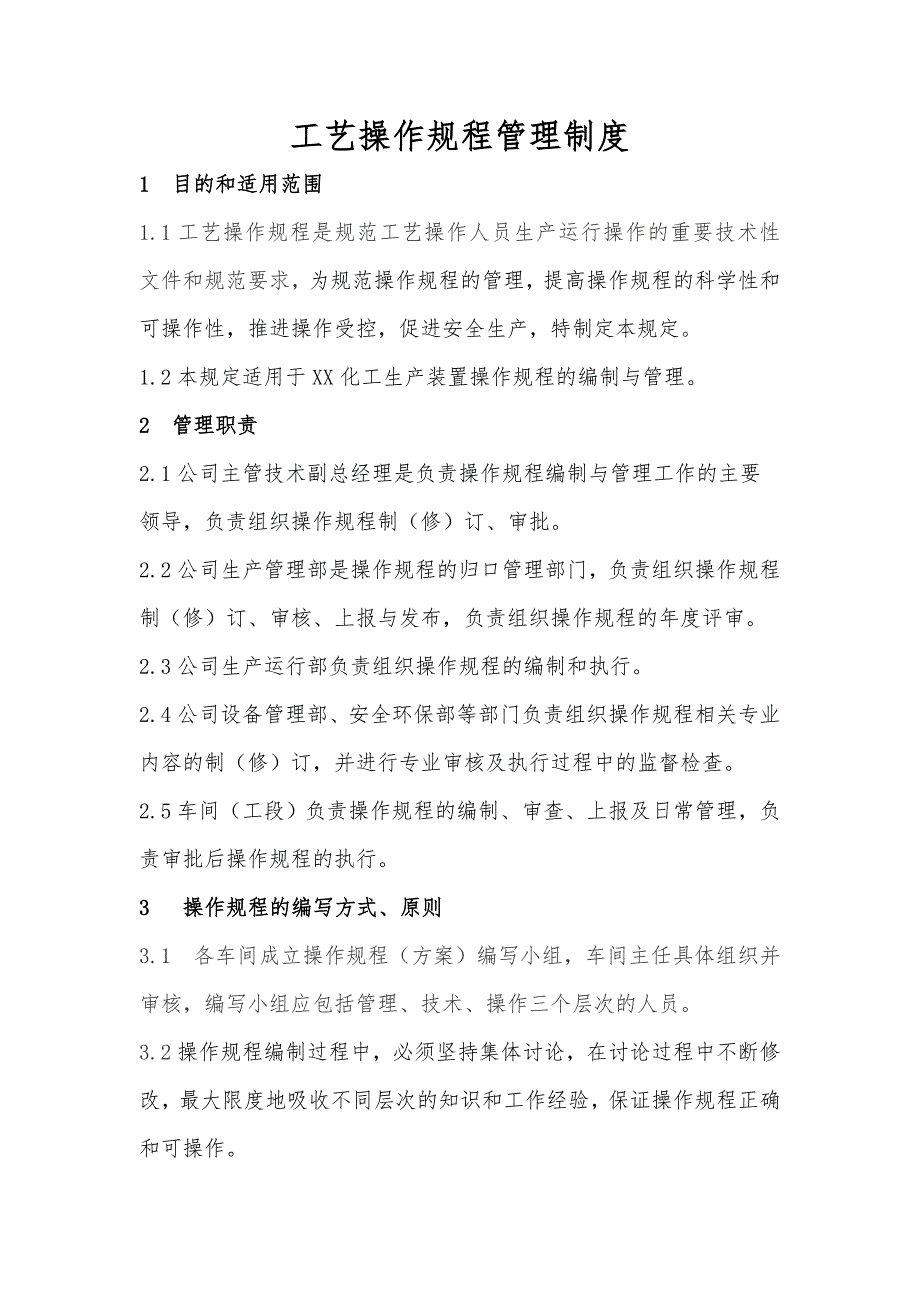 工艺操作规程管理制度
1 目的和适用范围
1.1工艺操作规程是规范工艺操作人员生产运行操作的重要技术性
文件和规范要求，为规范操作规程的管理，提高操作规程的科学性和
可操作性，推进操作受控，促进安全生产，特制定本规定。
1.2本规定适用于XX化工生产装置操作规程的编制与管理。
2 管理职责
2.1公司主管技术副总经理是负责操作规程编制与管理工作的主要
领导，负责组织操作规程制（修）订、审批。
2.2公司生产管理部是操作规程的归口管理部门，负责组织操作规程
制（修）订、审核、上报与发布，负责组织操作规程的年度评审。
2.3公司生产运行部负责组织操作规程的编制和执行。
2.4公司设备管理部、安全环保部等部门负责组织操作规程相关专业
内容的制（修）订，并进行专业审核及执行过程中的监督检查。
2.5车间（工段）负责操作规程的编制、审查、上报及日常管理，负
责审批后操作规程的执行。
3 操作规程的编写方式、原则
3.1 各车间成立操作规程（方案）编写小组，车间主任具体组织并
审核，编写小组应包括管理、技术、操作三个层次的人员。
3.2操作规程编制过程中，必须坚持集体讨论，在讨论过程中不断修
改，最大限度地吸收不同层次的知识和工作经验，保证操作规程正确
和可操作。